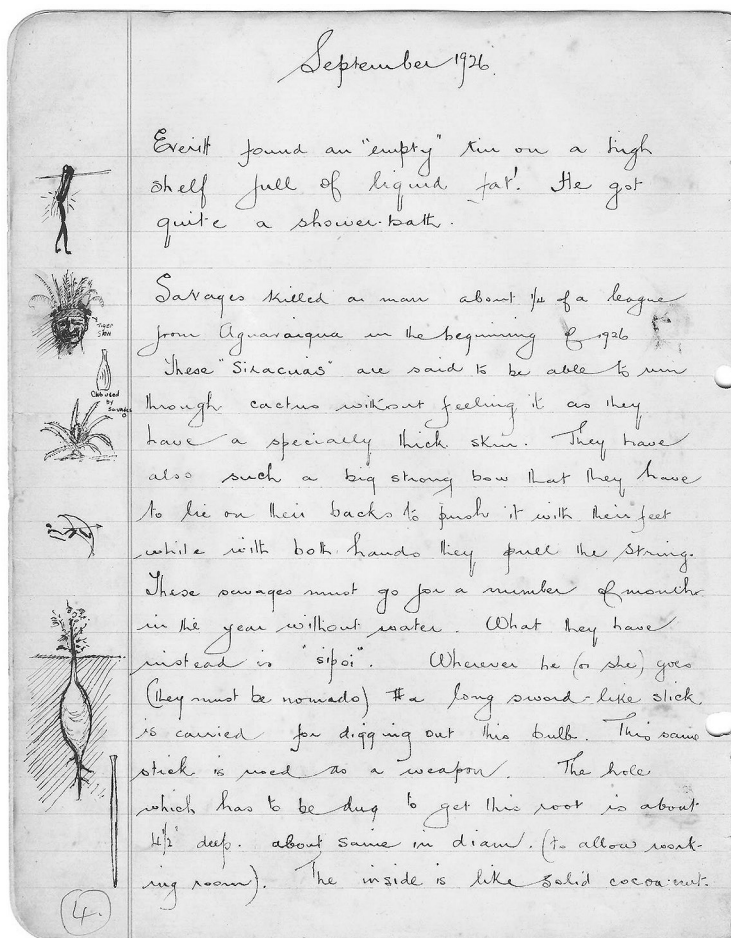 September 1926.
Everitt found an "empty" tin on a high
shelf full of liquid fat! He got
quite a shower-bath.
Savages killed a man about 1/4 of a league
from Aguaraigua in the beginning of 1926
These "Siracuas" are said to be able to run
through cactus without feeling it as they
have a specially thick skin. They have
also such a big strong bow that they have
to lie on their backs to push it with their feet
while with both hands they pull the string.
These savages must go for a number of months
in the year without water. What they have
instead is "sipoi". Wherever he (or she) goes
(they must be nomads) a long sword-like stick
is carried for digging out this bulb. This same
stick is used as a weapon. The hole
which has to be dug to get this root is about
4½' deep. about same in diam. (to allow work-
ing room). The inside is like solid cocoa-nut.
Tiger
Skin
Club used
by
Savages
4.